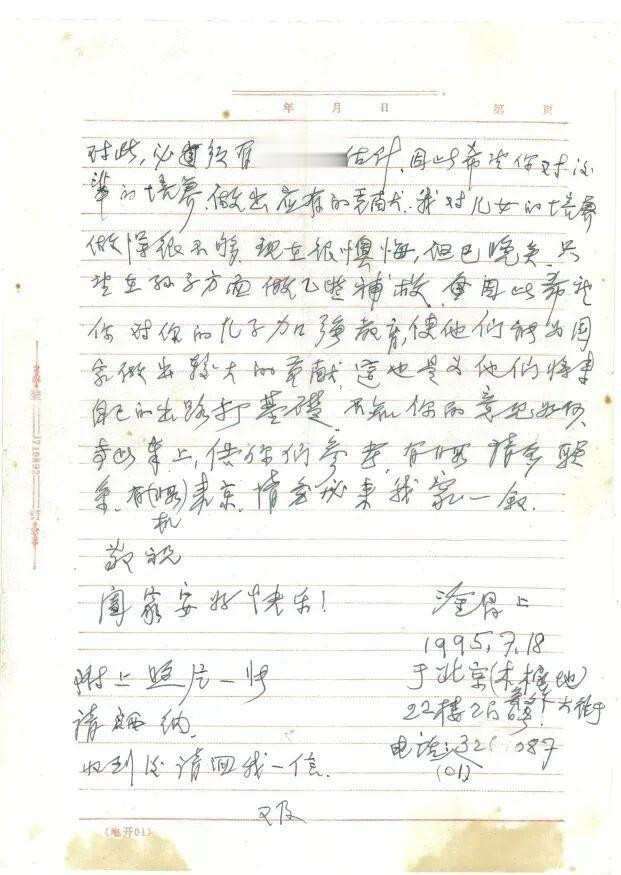 年 月 日 第 页
对此,必须有 估计,因此希望你对后
辈的培养,做出应有的贡献.我对儿女的培养
做得很不够,现在很懊悔,但已晚矣.只
望在孙子方面做些补救,因此希望
你对你的儿子加强教育,使他们能为国
家做出较大的贡献,这也是为他们将来
自己的出路打基础.不知你的意见如何,
奉上,供你们参考,有暇请多联
系,有机(暇)来京,请务必来我家一叙.
敬祝
阖家安好快乐!
上
1995,7.18
于北京(木樨地)
22楼
附上照片一张
请收纳.
收到后请回我一信.
电话:
(01)
又及
(电开01)